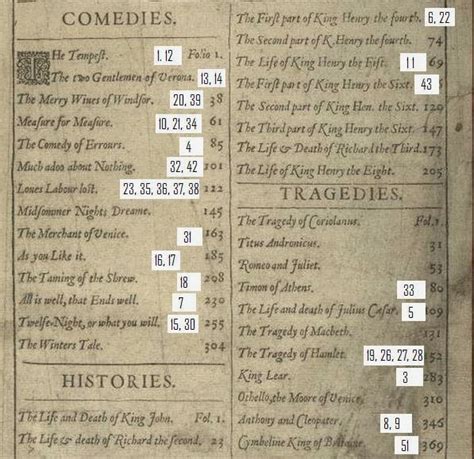 COMEDIES.
The Tempeſt. 1, 12 Folio 1.
The two Gentlemen of Verona. 13, 14
The Merry Wiues of Windſor. 20, 39 38
Meaſure for Meaſure. 10, 21, 34 61
The Comedy of Errours. 4 85
Much adoo about Nothing. 32, 42 101
Loues Labour loſt. 23, 35, 36, 37, 38 122
Midſommer Nights Dreame. 145
The Merchant of Venice. 31 163
As you Like it. 16, 17 185
The Taming of the Shrew. 18 208
All is well, that Ends well. 7 230
Twelfe-Night, or what you will. 15, 30 255
The Winters Tale. 304
HISTORIES.
The Life and Death of King John. Fol. 1.
The Life & death of Richard the ſecond. 23
The Firſt part of King Henry the fourth. 6, 22
The Second part of K. Henry the fourth. 74
The Life of King Henry the Fift. 11 69
The Firſt part of King Henry the Sixt. 43
The Second part of King Hen. the Sixt. 120
The Third part of King Henry the Sixt. 147
The Life & Death of Richard the Third. 173
The Life of King Henry the Eight. 205
TRAGEDIES.
The Tragedy of Coriolanus. Fol. 1.
Titus Andronicus. 31
Romeo and Juliet. 53
Timon of Athens. 33 80
The Life and death of Julius Cæſar. 5 109
The Tragedy of Macbeth. 131
The Tragedy of Hamlet. 19, 26, 27, 28 152
King Lear. 3 283
Othello, the Moore of Venice. 310
Anthony and Cleopater. 8, 9 346
Cymbeline King of Britaine. 51 369